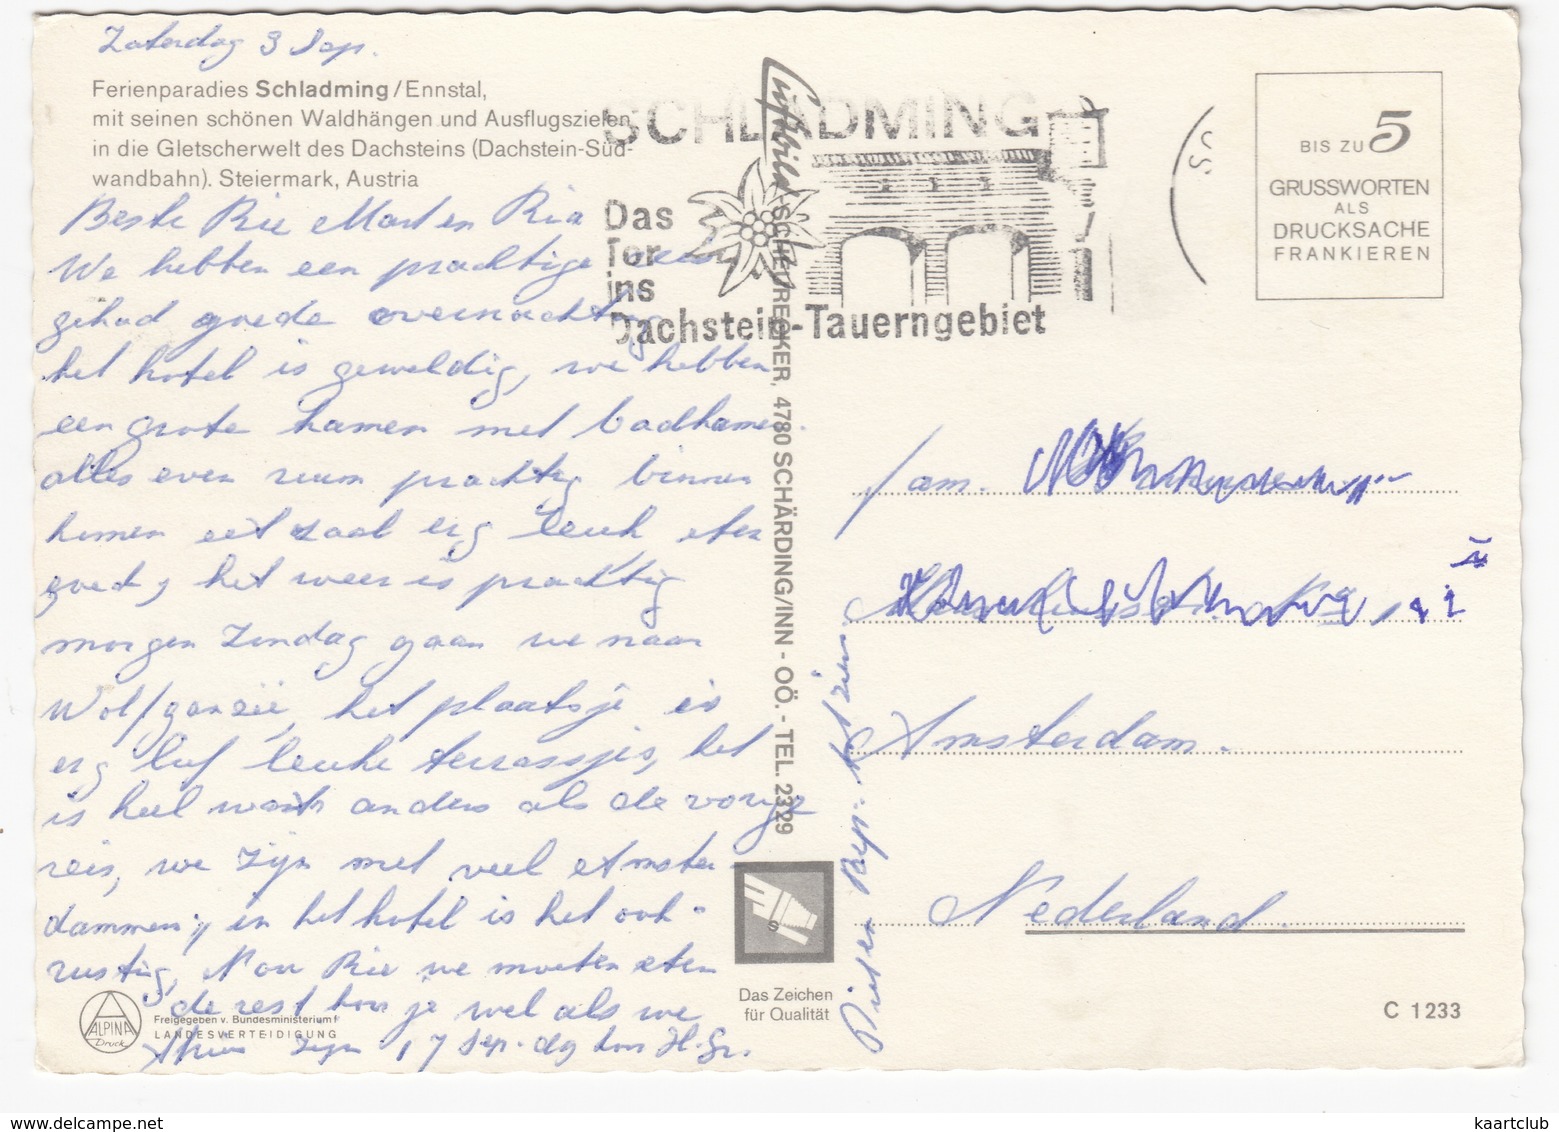 Zaterdag 3 Sep.
Ferienparadies Schladming/Ennstal,
mit seinen schönen Waldhängen und Ausflugszielen
in die Gletscherwelt des Dachsteins (Dachstein-Süd-
wandbahn). Steiermark, Austria
Beste Rie Mart en Ria
We hebben een prachtige reis
gehad goede overnachting
het hotel is geweldig, we hebben
een grote kamer met badkamer.
alles even ruim prachtig binnen
komen eet zaal erg leuk eten
goed, het weer is prachtig
morgen Zondag gaan we naar
Wolfganzëe, het plaatsje is
erg leuk terrassjes, het
is heel wat anders als de vorige
reis, we zijn met veel Amster-
dammers, en in het hotel is het ook
rustig, Nou Rie we moeten eten
de rest hoor je wel als we
thuis zijn 17 Sep. dag hoor H. Gr.
ALPINA
Druck
Freigegeben v. Bundesministerium f
LANDESVERTEIDIGUNG
Luftbild SCHEURECKER, 4780 SCHÄRDING/INN - OÖ. - TEL. 2329
SCHLADMING
Das
Tor
ins
Dachstein-Tauerngebiet
BIS ZU 5
GRUSSWORTEN
ALS
DRUCKSACHE
FRANKIEREN
fam.
Amsterdam.
Nederland.
S
Das Zeichen
für Qualität
C 1233
kaartclub